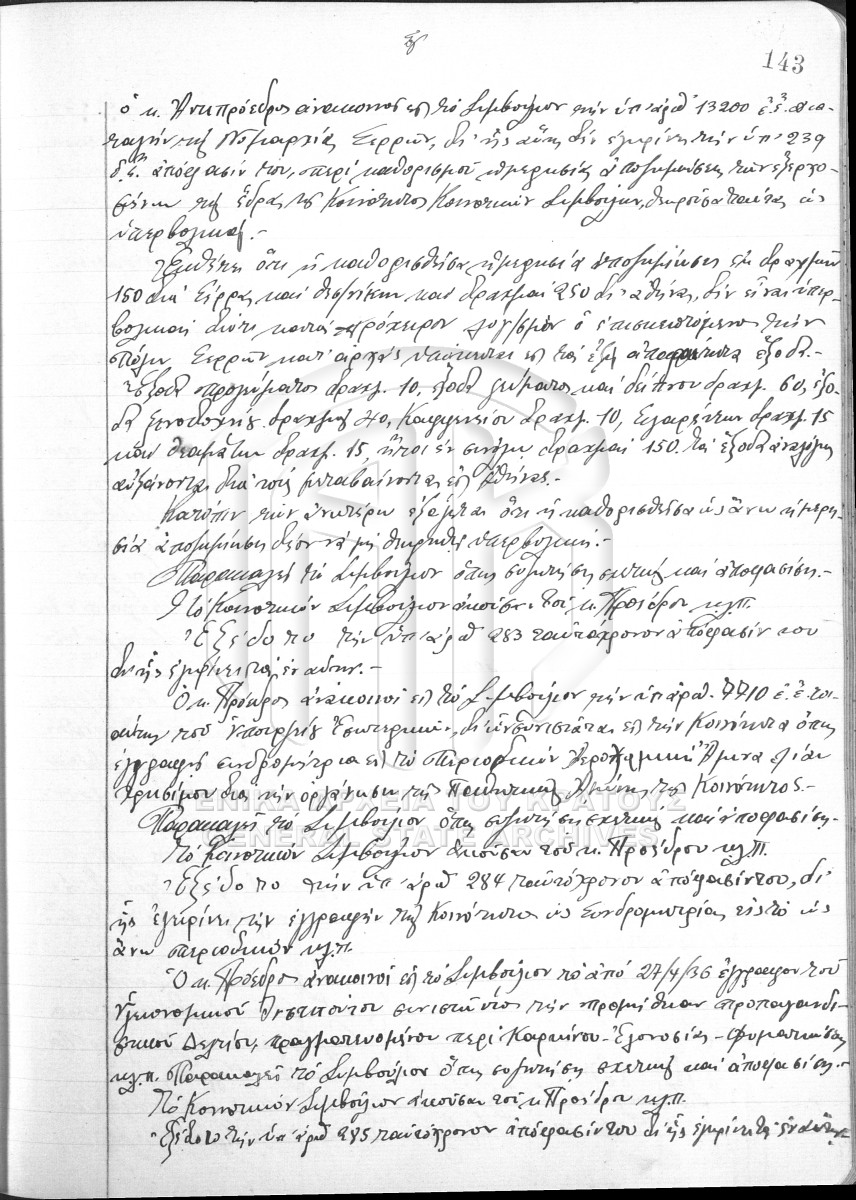 143
ὁ κ. Ἀντιπρόεδρος ἀνακοινοῖ εἰς τὸ Συμβούλιον τὴν ὑπ' ἀριθ. 13200 ἐ.ἔ. δια-
ταγὴν τῆς Νομαρχίας Σερρῶν, δι' ἧς αὕτη δὲν ἐγκρίνει τὴν ὑπ' 239
ἀπόφασίν του, περὶ καθορισμοῦ ἡμερησίας ἀποζημιώσεως τῶν ἐξερχο-
μένων τῆς ἕδρας τῆς Κοινότητος Κοινοτικῶν Συμβούλων, θεωροῦσα ταύτας ὡς
ὑπερβολικάς.-
Ἐκθέτει ὅτι ἡ καθορισθεῖσα ἡμερησία ἀποζημίωσις ἐκ δραχμῶν
150 διὰ Σέρρας καὶ Θεσ/νίκην καὶ δραχμαὶ 250 δι' Ἀθήνας, δὲν εἶναι ὑπερ-
βολικαὶ διότι κατὰ πρόχειρον λογισμὸν ὁ ἐπισκεπτόμενος τὴν
πόλιν Σερρῶν κατ' ἀρχὰς ὑπόκειται εἰς τὰ ἑξῆς ἀπαραίτητα ἔξοδα.-
Ἔξοδα προγεύματος δραχ. 10, ἔξοδα γεύματος καὶ δείπνου δραχ. 60, ἔξο-
δα ξενοδοχείου δραχμὰς 40, Καφφενείου δραχ. 10, Σιγαρέττων δραχ. 15
καὶ θεαμάτων δραχ. 15, ἤτοι ἐν συνόλῳ δραχμαὶ 150. τὰ ἔξοδα ἀναλόγως
αὐξάνονται διὰ τοὺς μεταβαίνοντας εἰς Ἀθήνας.-
Κατόπιν τῶν ἀνωτέρω ἐξάγεται ὅτι ἡ καθορισθεῖσα ὡς ἄνω ἡμερη-
σία ἀποζημίωσις δέον νὰ μὴ θεωρηθῇ ὑπερβολική.-
Παρακαλεῖ τὸ Συμβούλιον ὅπως συζητήσῃ σχετικῶς καὶ ἀποφασίσῃ.-
Τὸ Κοινοτικὸν Συμβούλιον ἀκοῦσαν τοῦ κ. Προέδρου κ.λ.π.
Ἐξέδοτο τὴν ὑπ' ἀριθ. 283 ταυτόχρονον ἀπόφασίν του
δι' ἧς ἐμφαίνεται ἐν αὐτῇ.-
Ὁ κ. Πρόεδρος ἀνακοινοῖ εἰς τὸ Συμβούλιον τὴν ὑπ' ἀριθ. 7710 ἐ.ἔ. τοι-
αύτην τοῦ Ὑπουργείου Ἐσωτερικῶν, δι' ἧς συνιστᾶται εἰς τὴν Κοινότητα ὅπως
ἐγγραφῇ συνδρομήτρια εἰς τὸ περιοδικὸν Ἀεροχημικὴ Ἄμυνα
χρήσιμον διὰ τὴν ὀργάνωσιν τῆς Παθητικῆς Ἀμύνης τῆς Κοινότητος.-
Παρακαλεῖ τὸ Συμβούλιον ὅπως συζητήσῃ σχετικῶς καὶ ἀποφασίσῃ.-
Τὸ Κοινοτικὸν Συμβούλιον ἀκοῦσαν τοῦ κ. Προέδρου κ.λ.π.
Ἐξέδοτο τὴν ὑπ' ἀριθ. 284 ταυτόχρονον ἀπόφασίν του, δι'
ἧς ἐγκρίνει τὴν ἐγγραφὴν τῆς Κοινότητος ὡς Συνδρομητρίας εἰς τὸ ὡς
ἄνω περιοδικὸν κ.λ.π.
Ὁ κ. Πρόεδρος ἀνακοινοῖ εἰς τὸ Συμβούλιον τὸ ἀπὸ 27/4/36 ἔγγραφον τοῦ
Ὑγειονομικοῦ Ἰνστιτούτου συνιστῶντος τὴν προμήθειαν προπαγανδι-
στικοῦ Δελτίου, πραγματευομένου περὶ Καρκίνου - Ἑλονοσίας - Φυματιώσεως
κ.λ.π. Παρακαλεῖ τὸ Συμβούλιον ὅπως συζητήσῃ σχετικῶς καὶ ἀποφασίσῃ.-
Τὸ Κοινοτικὸν Συμβούλιον ἀκοῦσαν τοῦ κ. Προέδρου κ.λ.π.
Ἐξέδοτο τὴν ὑπ' ἀριθ. 285 ταυτόχρονον ἀπόφασίν του δι' ἧς ἐγκρίνει
ΓΕΝΙΚΑ ΑΡΧΕΙΑ ΤΟΥ ΚΡΑΤΟΥΣ
GENERAL STATE ARCHIVES